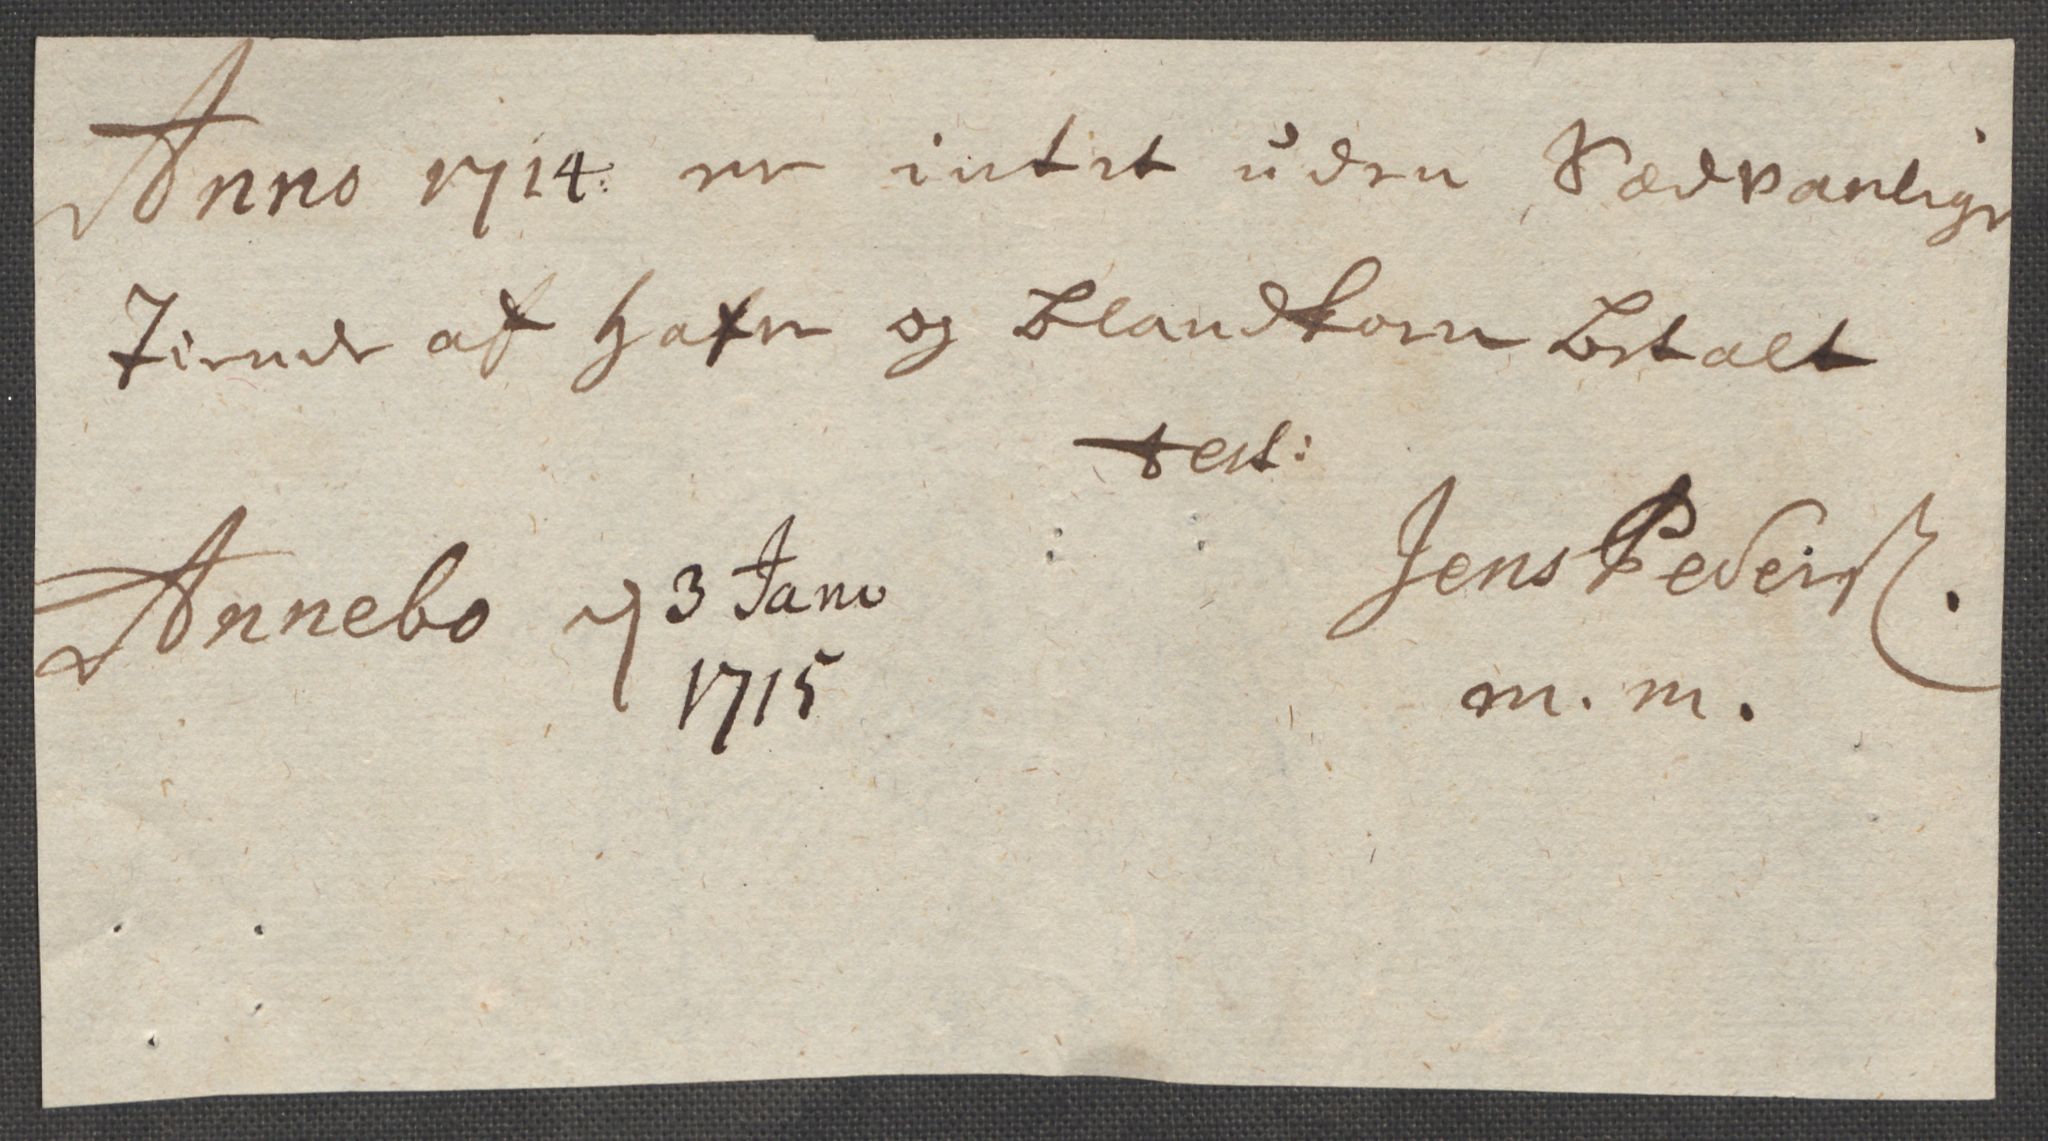 Anno 1714: er intet uden Sædvanlige
Tiende af Hafre og Blandkorn betalt
test:
Annebo d 3 Janv Jens Pederß.
1715 m. m.